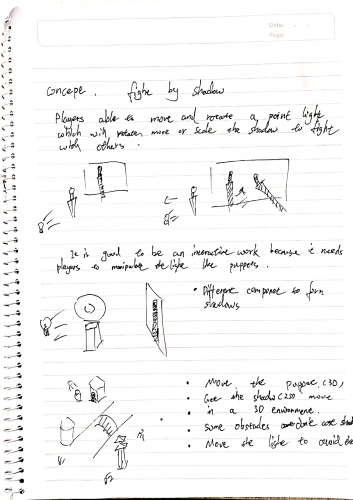 Date:
Page:
Concept. fight by shadow
Players able to move and rotate a point light
which will rotate, move or scale the shadow to fight
with others.
It is good to be an interactive work because it needs
players to manipulate the light like puppeters.
• Different component so form
shadows
• Move the puppet (3D),
• Get the shadow (2D) move
• in a 3D environment.
• Some obstacles create
• Move the light to avoid the